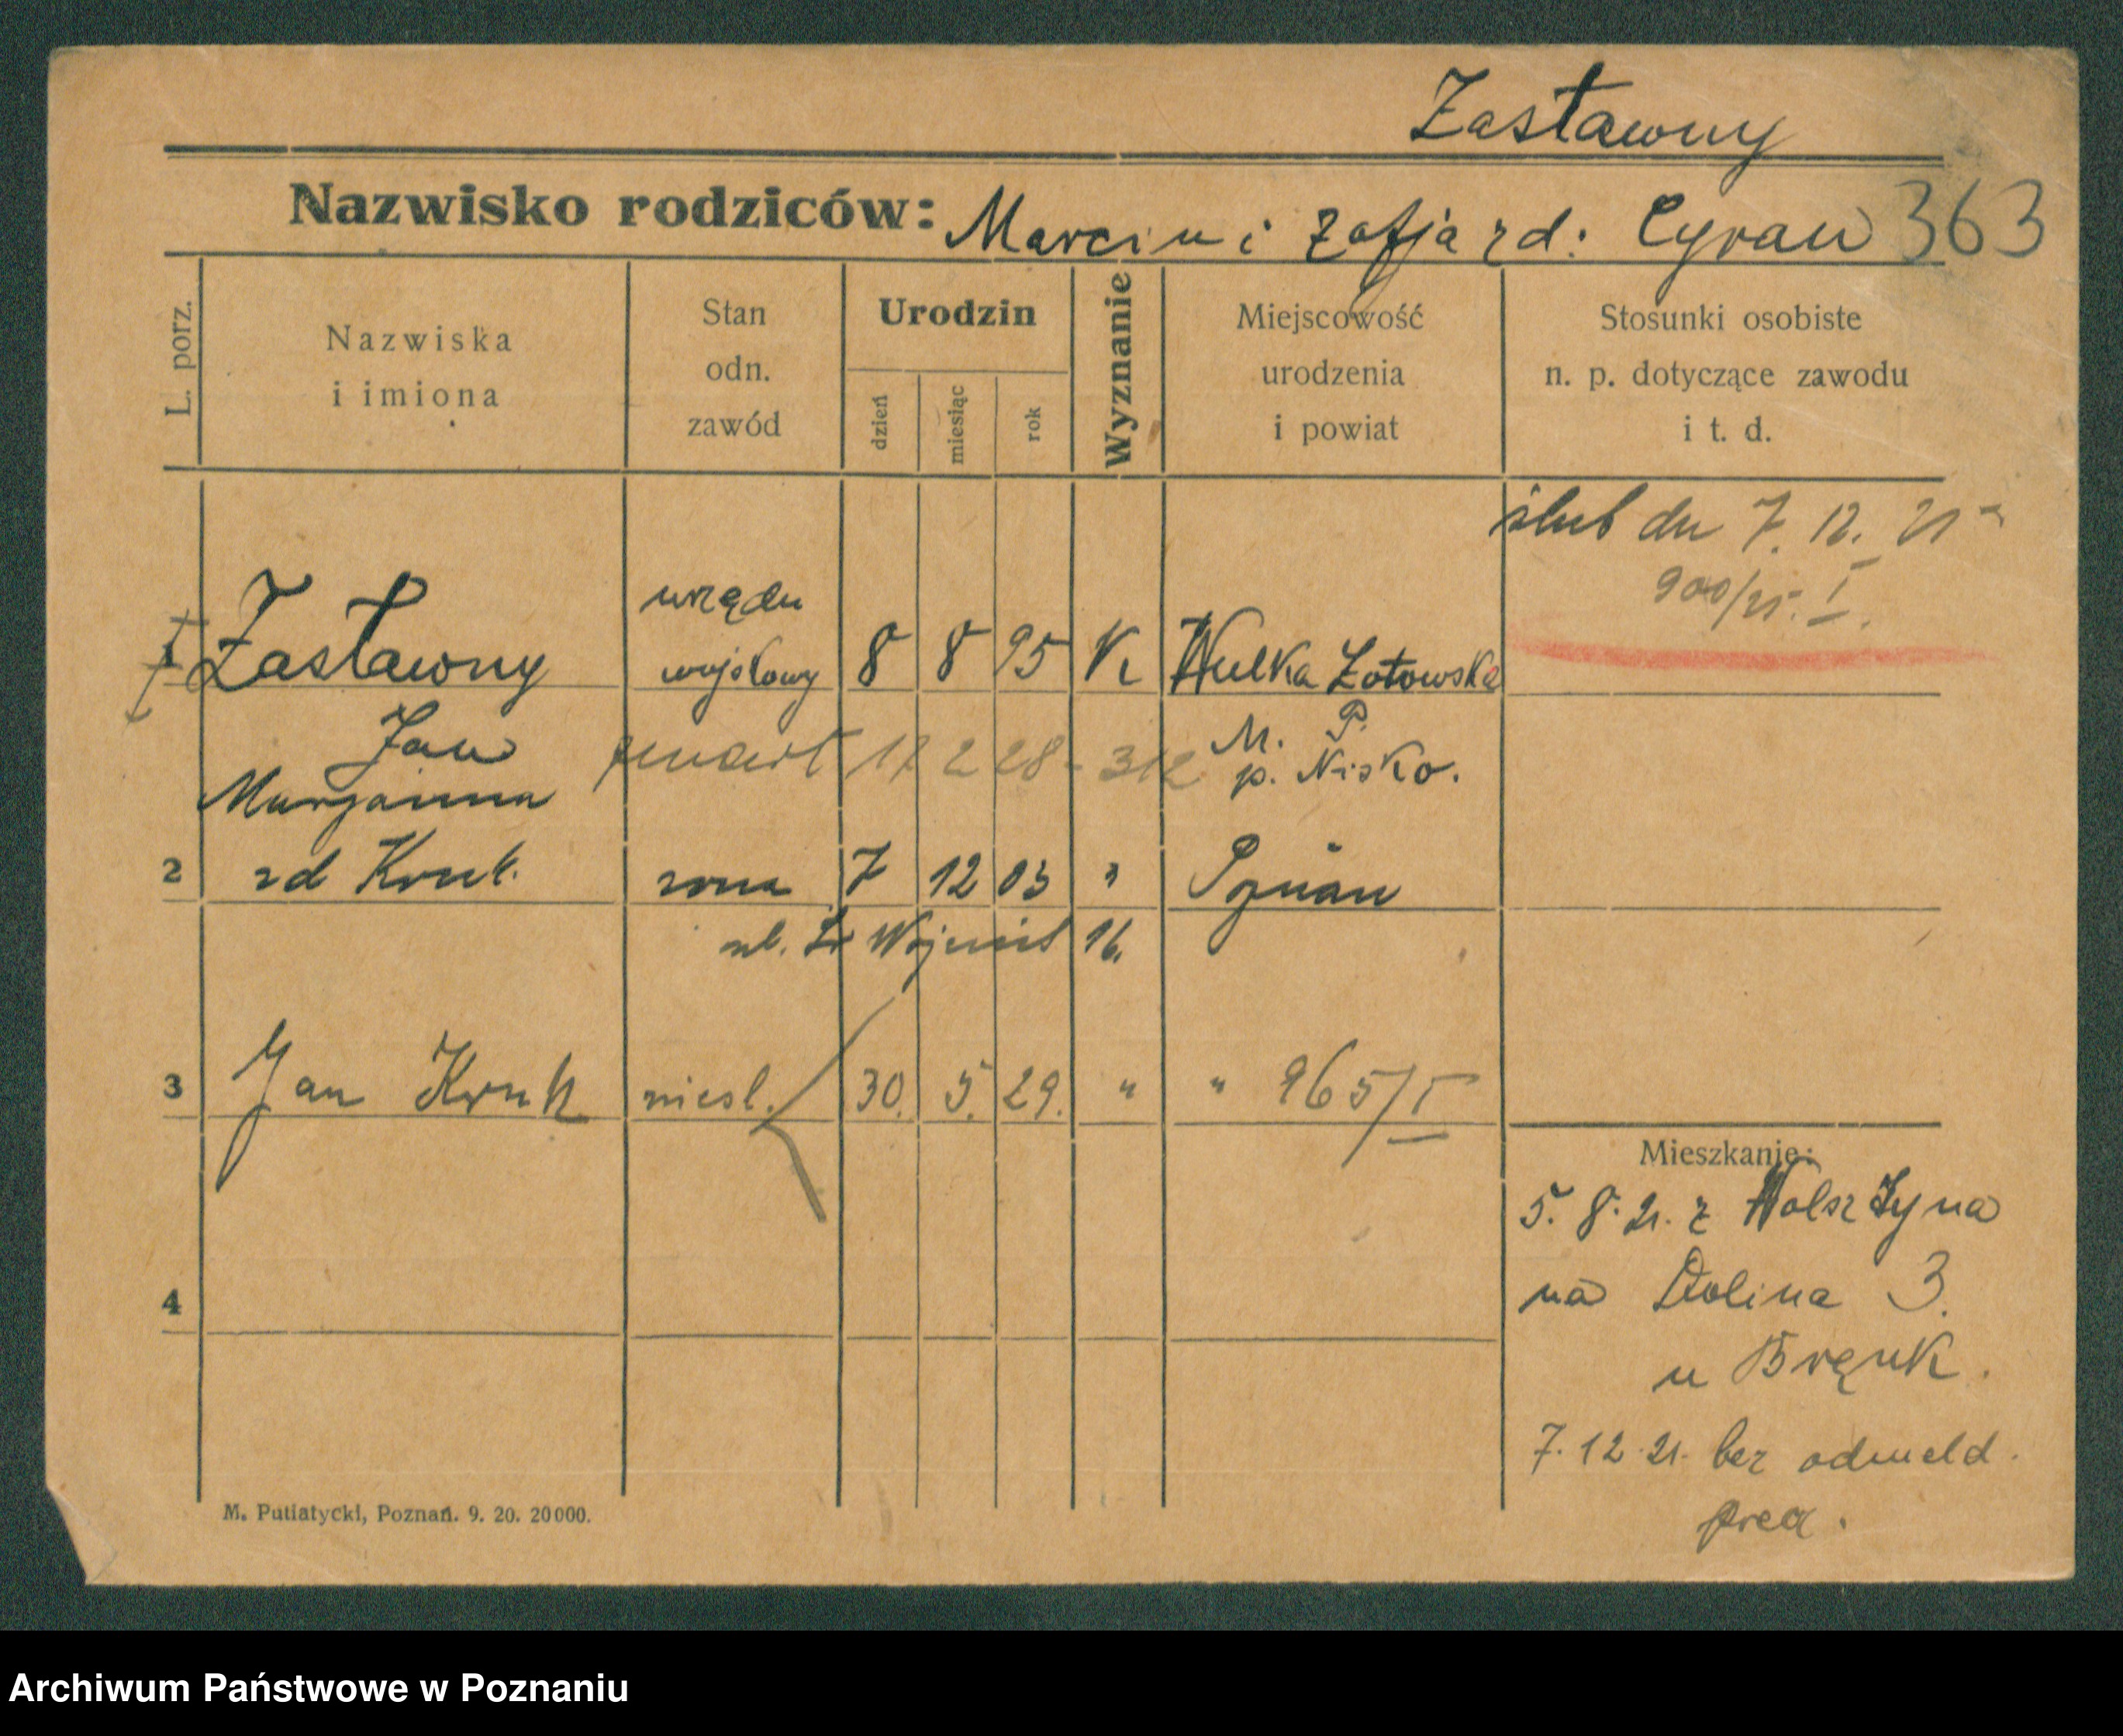 Zastawny
Nazwisko rodziców: Marcin i Zofja zd: Cyran 363
L. porz.
Nazwiska
i imiona
Stan
odn.
zawód
Urodzin
dzień
miesiąc
rok
Wyznanie
Miejscowość
urodzenia
i powiat
Stosunki osobiste
n. p. dotyczące zawodu
i t. d.
ślub dn 7. 12. 21
900/21. I.
urzędn
1 Zastawny wojskowy 8 8 95 K Wulka Łotowska
Jan zmarł 17 2 28 - 312 M. P.
p. Nisko.
Marjanna
2 zd Kruk. żona 7 12 03 " Poznań
ul. Św Wojciech 16.
3 Jan Kruk nieśl. 30. 5. 29. " " 965/I
Mieszkanie:
5. 8. 21. z Wolsztyna
na Dolina 3.
u Brąnk.
7. 12. 21. bez odmeld.
4
M. Putiatycki, Poznań. 9. 20. 20000.
Archiwum Państwowe w Poznaniu